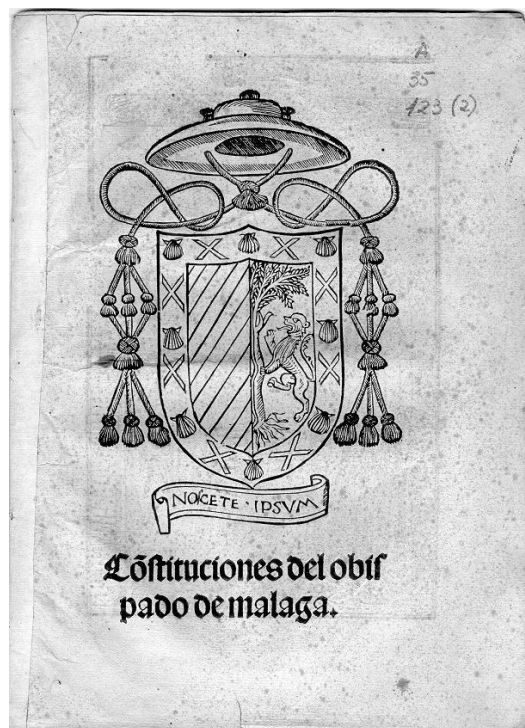 A
35
123 (2)
NOSCETE · IPSVM
Cõſtituciones del obiſ
pado de malaga.